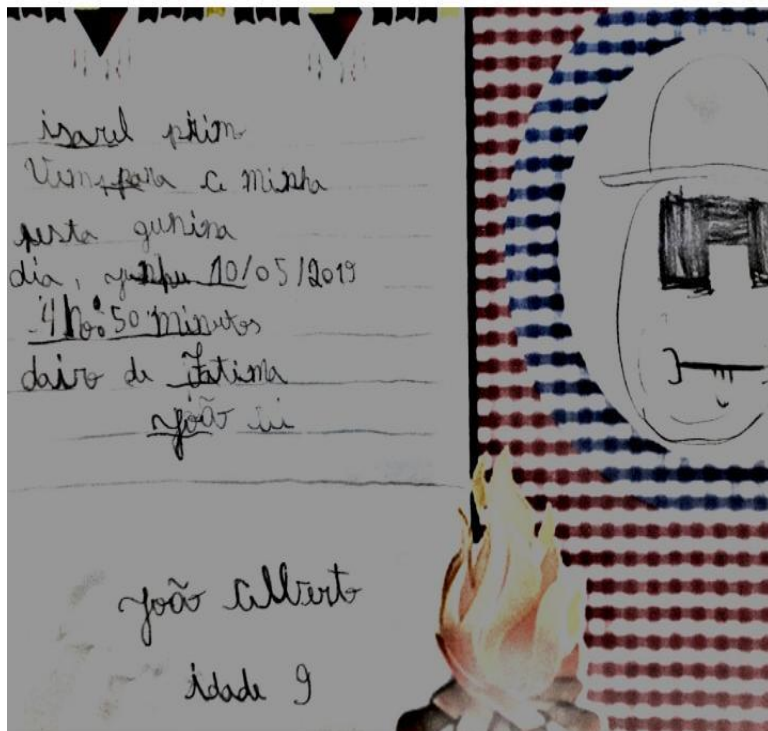 isarel prim
Vem para a minha
festa gunina
dia, 10/05/2019
4 ho: 50 minutos
dairo de Fatima
João
João Alberto
idade 9